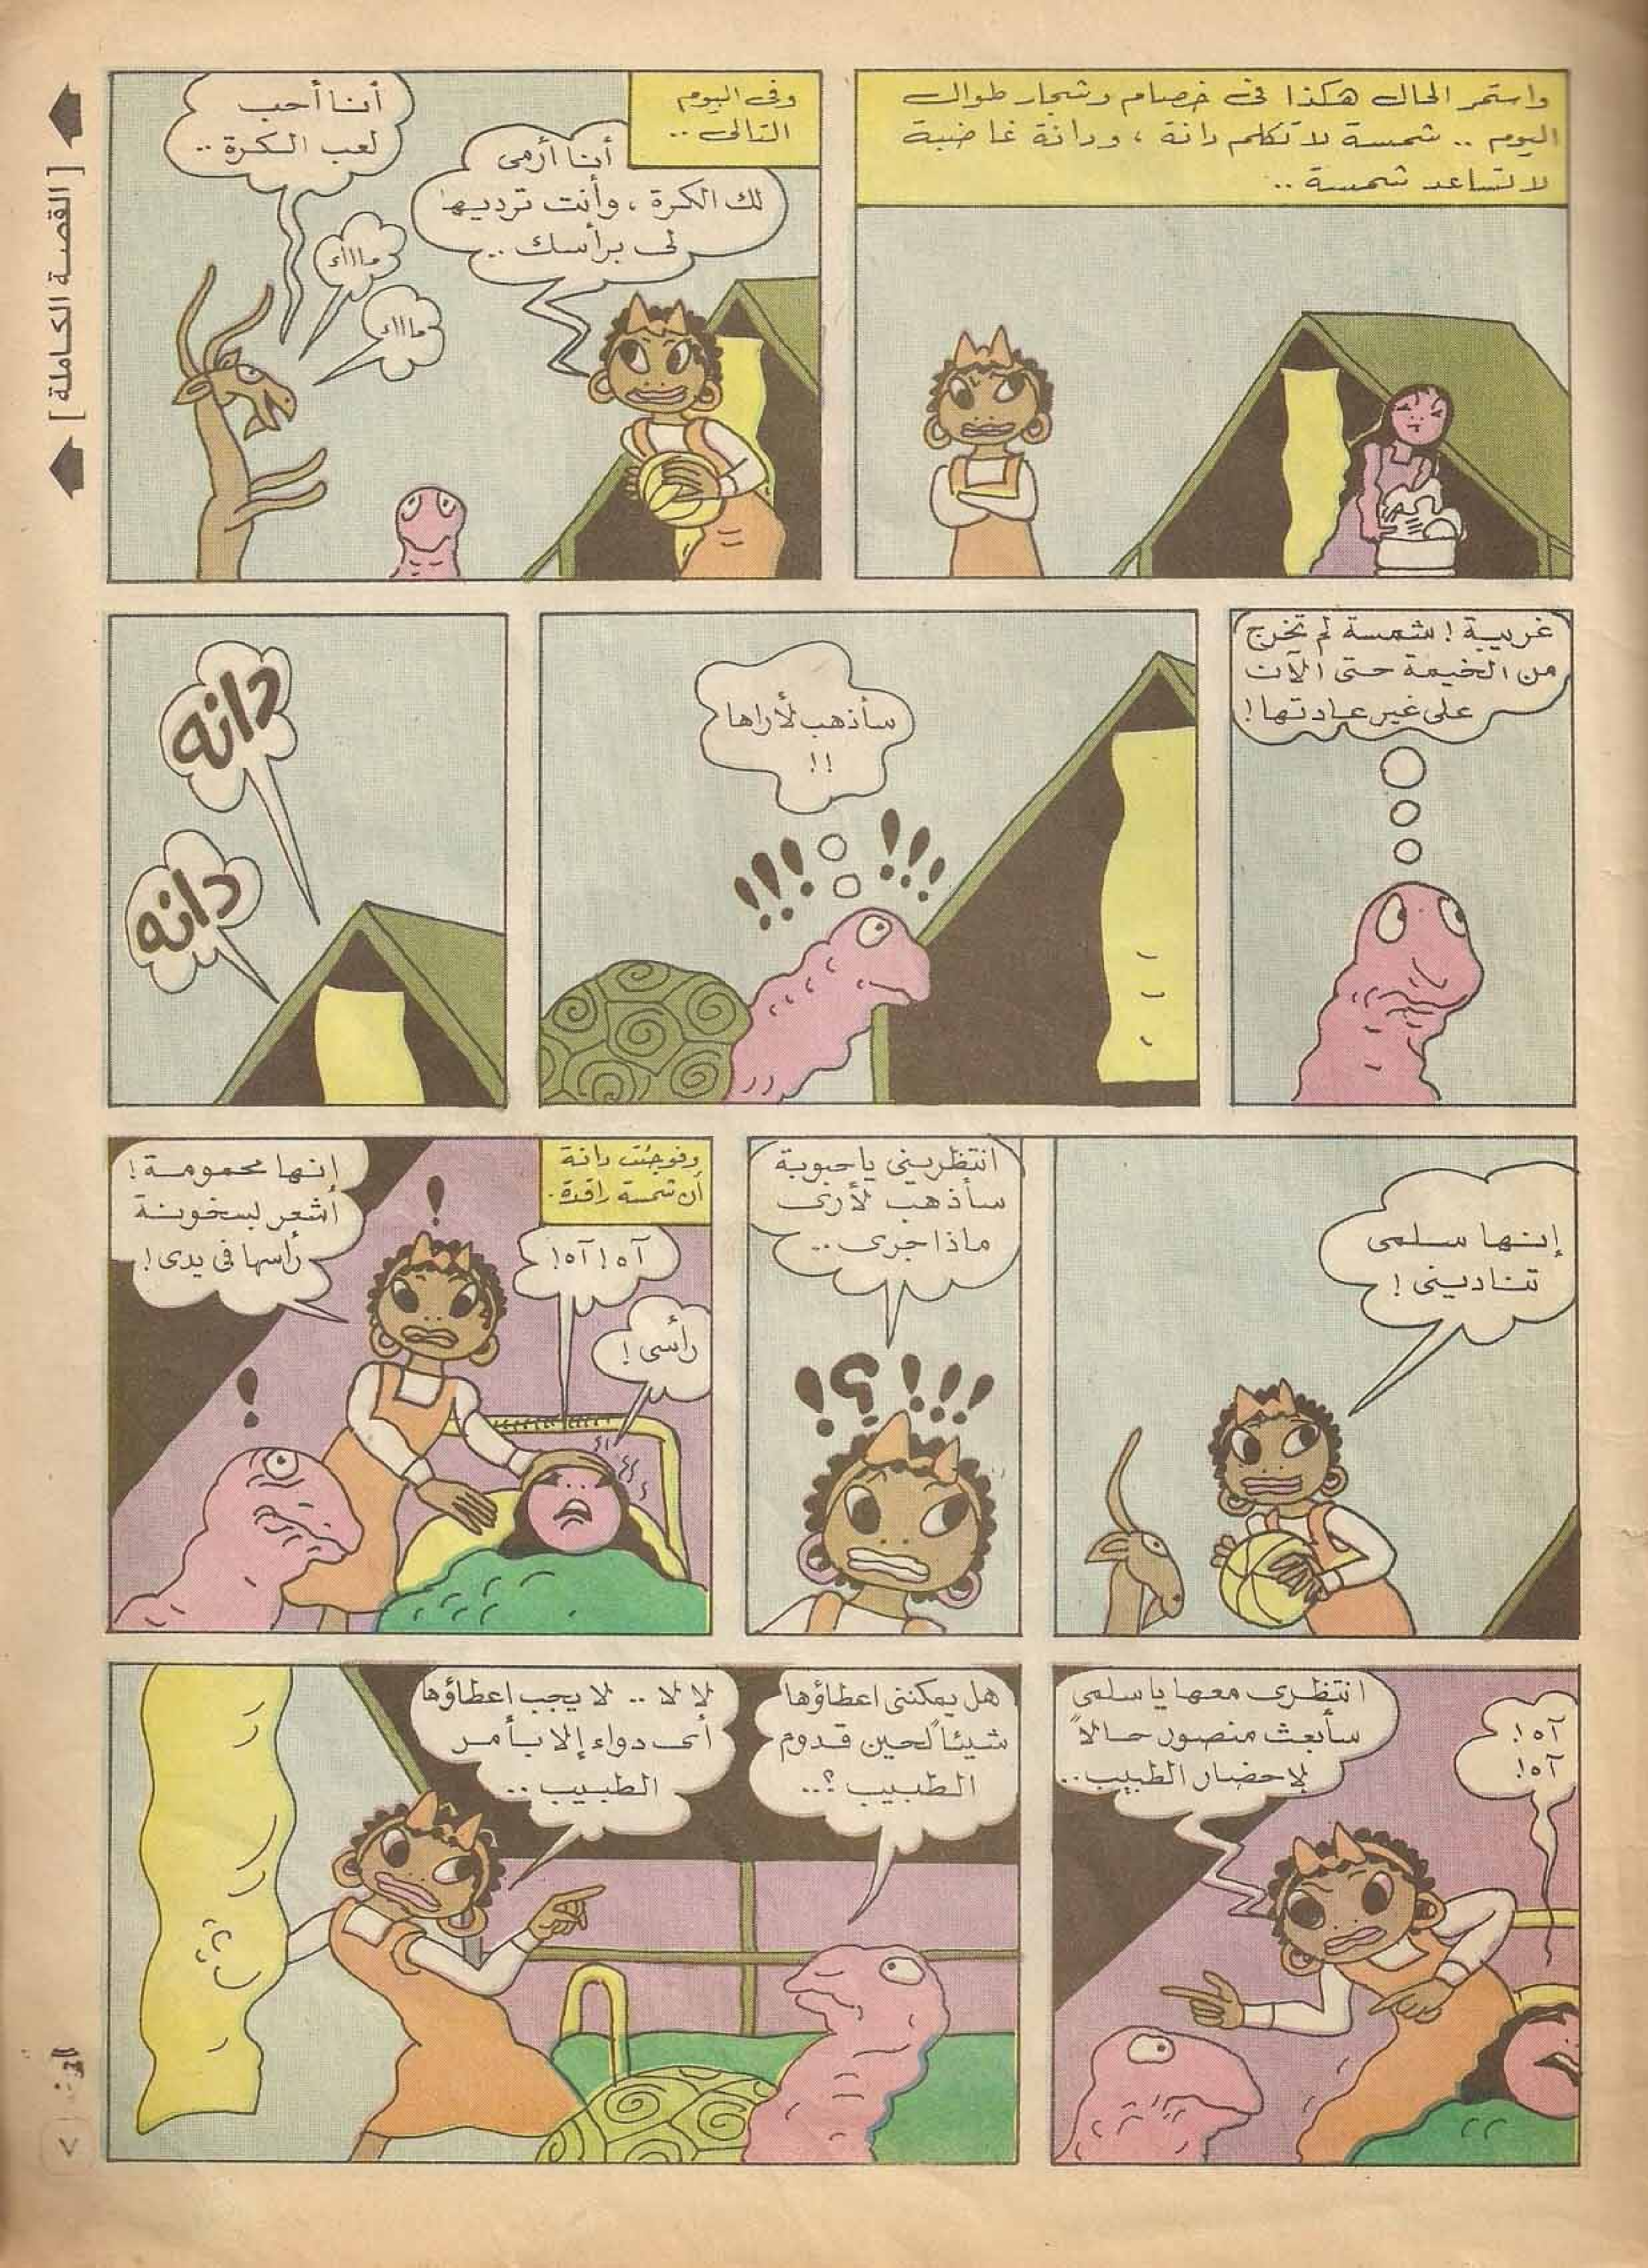 واستمر الحال هكذا فى خصام وشجار طوال
اليوم .. شمسة لا تكلم دانة ، ودانة غاضبة
لا تساعد شمسة ..
وفى اليوم
التالى ..
أنا أرمى
لك الكرة ، وأنت ترديها
لى برأسك ..
أنا أحب
لعب الكرة ..
مااااء
مااااء
غريبة ! شمسة لم تخرج
من الخيمة حتى الآن
على غير عادتها !
سأذهب لأراها
!!
!!!
!!!
دانه
دانه
إنها سلمى
تناديني !
انتظريني ياحبوبة
سأذهب لأرى
ماذا جرى ..
!؟!!!
وفوجئت دانة
أن شمسة راقدة .
آه ! آه !
رأسى !
إنها محمومة !
أشعر بسخونة
رأسها فى يدى !
!
!
آه !
آه !
انتظرى معها يا سلمى
سأبعث منصور حالاً
لإحضار الطبيب ..
هل يمكننى اعطاؤها
شيئاً لحين قدوم
الطبيب ؟ ..
لا لا .. لا يجب اعطاؤها
أى دواء إلا بأمر
الطبيب ..
[ القصة الكاملة ]
٧